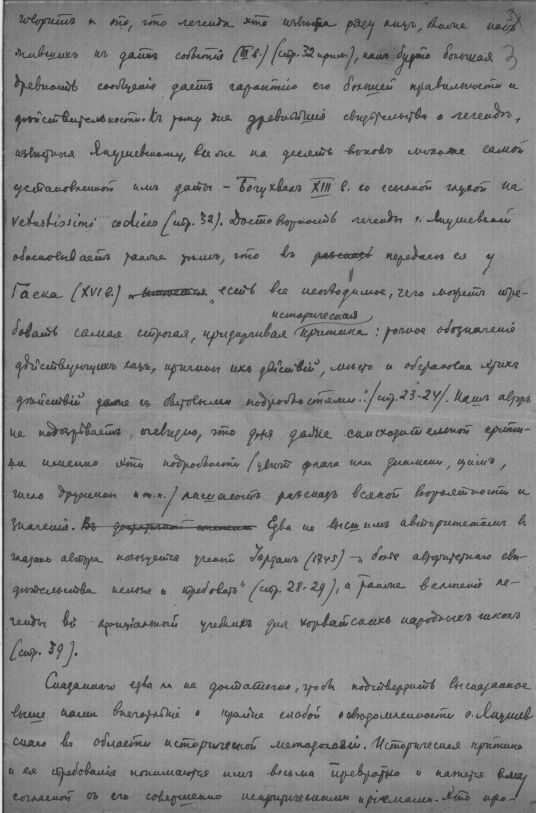 3
говоритъ и то, что легенда эта извѣстна ряду лицъ, ближе насъ
3
жившихъ къ датѣ событія (III в.) (стр. 32 прим.), какъ будто большая
древность сообщенія даетъ гарантію его большей правильности и
дѣйствительности. Къ тому же древнѣйшія свидѣтельства о легендѣ,
извѣстныя Янушевскому, все же на десять вѣковъ моложе самой
установленной имъ даты – Богухвалъ XIII в. со ссылкой глухой на
vetustissimi codices (стр. 32). Достовѣрность легенды г. Янушевскій
обосновываетъ также тѣмъ, что въ разсказѣ передачѣ ея у
Гаека (XVI в.) „есть все необходимое, чего можетъ тре-
историческая
бовать самая строгая, придирчивая критика: точное обозначеніе
дѣйствующихъ лицъ, причины ихъ дѣйствій, мѣсто и обстановка этихъ
дѣйствій даже съ бытовыми подробностями" (стр. 23-24). Нашъ авторъ
не подозрѣваетъ, очевидно, что для даже снисходительной крити-
ки именно эти подробности (цвѣтъ флага или знамени, щитъ,
число дружины и т. п.) лишаютъ разсказъ всякой вѣроятности и
значенія. Едва не высшимъ авторитетомъ въ
глазахъ автора пользуется ученый Іорданъ (1745) – „болѣе авторитетнаго сви-
дѣтельства нельзя и требовать" (стр. 28-29), а также включеніе ле-
генды въ офиціальный учебникъ для хорватскихъ народныхъ школъ
(стр. 39).
Сказаннаго едва ли не достаточно, чтобы подтвердить высказанное
выше нами впечатлѣніе о крайне слабой освѣдомленности г. Янушев-
скаго въ области исторической методологіи. Историческая критика
и ея требованія понимаются имъ весьма превратно и кажется ему
согласной съ его совершенно некритическими пріемами. Это про-